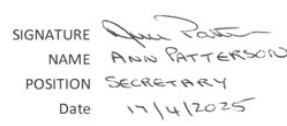 SIGNATURE Ann Patterson
NAME ANN PATTERSON
POSITION SECRETARY
Date 17/4/2025